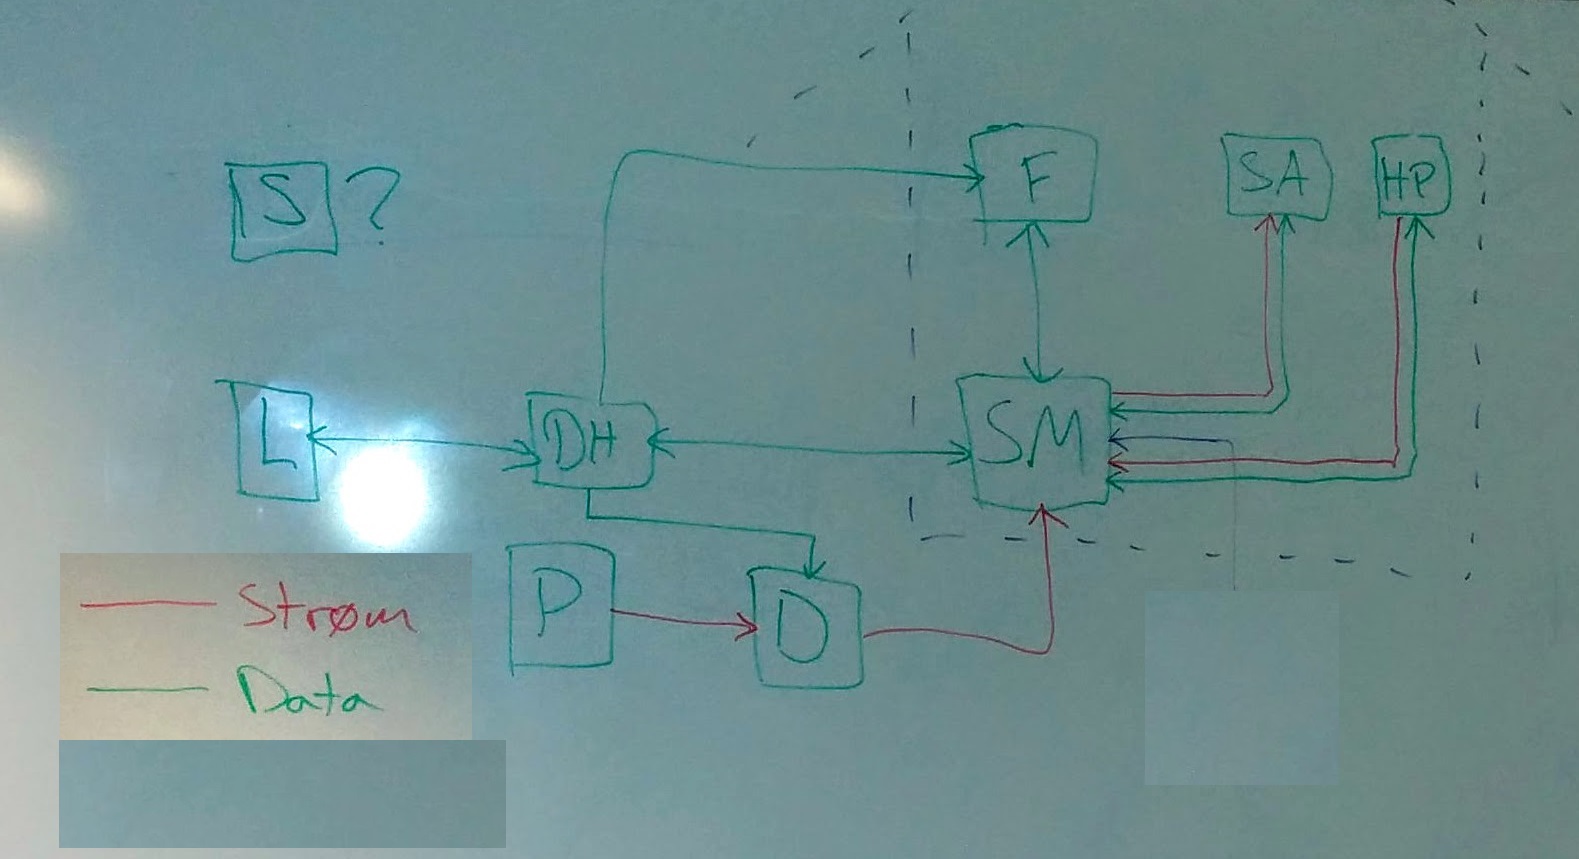 F
SA
HP
S ?
L
DH
SM
P
D
Strøm
Data